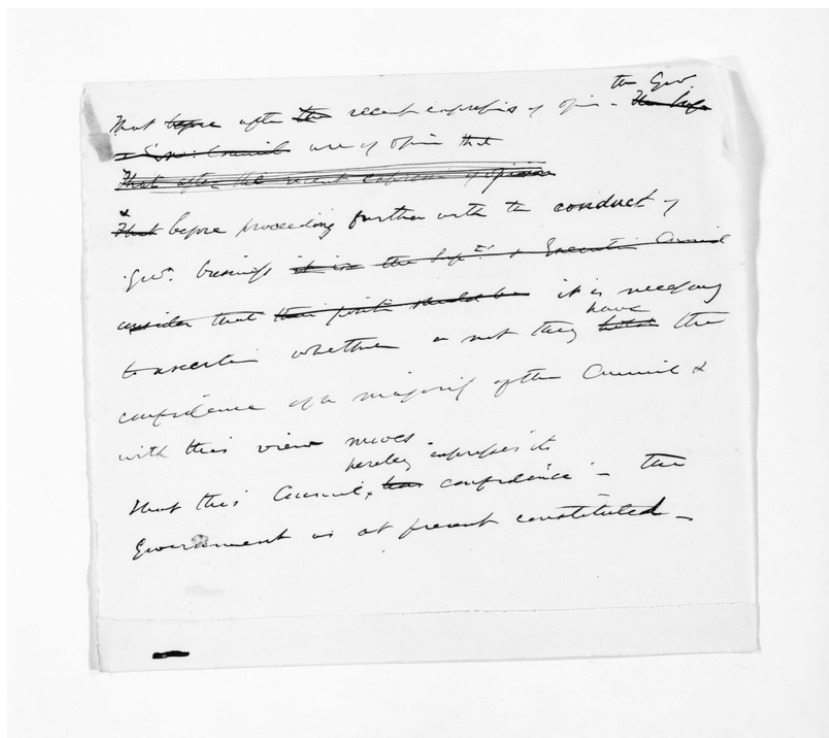 the Gov.
That before after the recent expressis of opin - The Supt
& Exec: Council are of opin that
That after the recent expression of opinion
&
That before proceeding further with the conduct of
Govt. business it is the Supt. & Executive Council
consider that their position should be it is necessary
have
to ascertain whether or not they hold the
confidence of a majority of the Council &
with this view moves
hereby expresses its
That this Council, has confidence in the
Government as at present constituted -